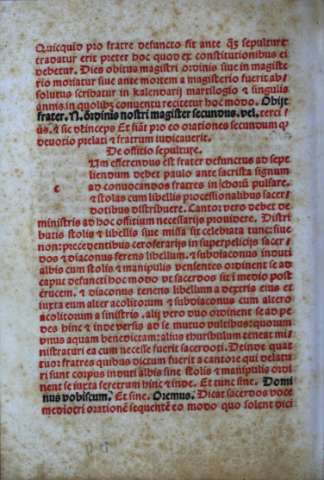 Quicquid pro fratre defuncto fit ante q̃ sepulture
tradatur erit preter hoc quod ex constitutionibus ei
debetur. Dies obitus magistri ordinis siue in magiste
rio moriatur siue ante mortem a magisterio fuerit ab
solutus scribatur in kalendarij martilogio & singulis
annis in quolibꝫ conuentu recitetur hoc modo. Obijt
frater. N. ordinis nostri magister secundus. vel. terci
us. & sic deinceps Et fiãt pro eo orationes secundum ꝙ
deuotio prelati & fratrum iudicauerit.
De officio sepulture.
Um efferendus est frater defunctus ad sepe
liendum debet paulo ante sacrista signum
ad conuocandos fratres in chorũ pulsare.
c & stolas cum libellis processionalibus sacer
dotibus distribuere. Cantor vero debet de
ministris ad hoc offitium necessarijs prouidere. Distri
butis stolis & libellis siue missa sit celebrata tunc siue
non: precedentibus ceroferarijs in superpelicijs sacer
dos & diaconus ferens libellum. & subdiaconus induti
albis cum stolis & manipulis venientes ordinent se ad
caput defuncti hoc modo vt sacerdos sit ĩ medio post
crucem. & diaconus tenens libellum a dextris eius et
iuxta eum alter acolitorum & subdiaconus cum altero
acolitorum a sinistris. alij vero duo ordinent se ad pe
des hinc & inde versus ad se mutuo vultibus: quorum
vnus aquam benedictam: alius thuribulum teneat mi
nistraturi ea cum necesse fuerit sacerdoti. Deinde quat
tuor fratres quibus dictum fuerit a cantore qui delatu
ri sunt corpus induti albis sine stolis & manipulis ordi
nent se iuxta feretrum hinc & inde. Et tunc sine. Domi
nus vobiscum. Et sine. Oremus. Dicat sacerdos voce
mediocri orationẽ sequentẽ eo modo quo solent dici